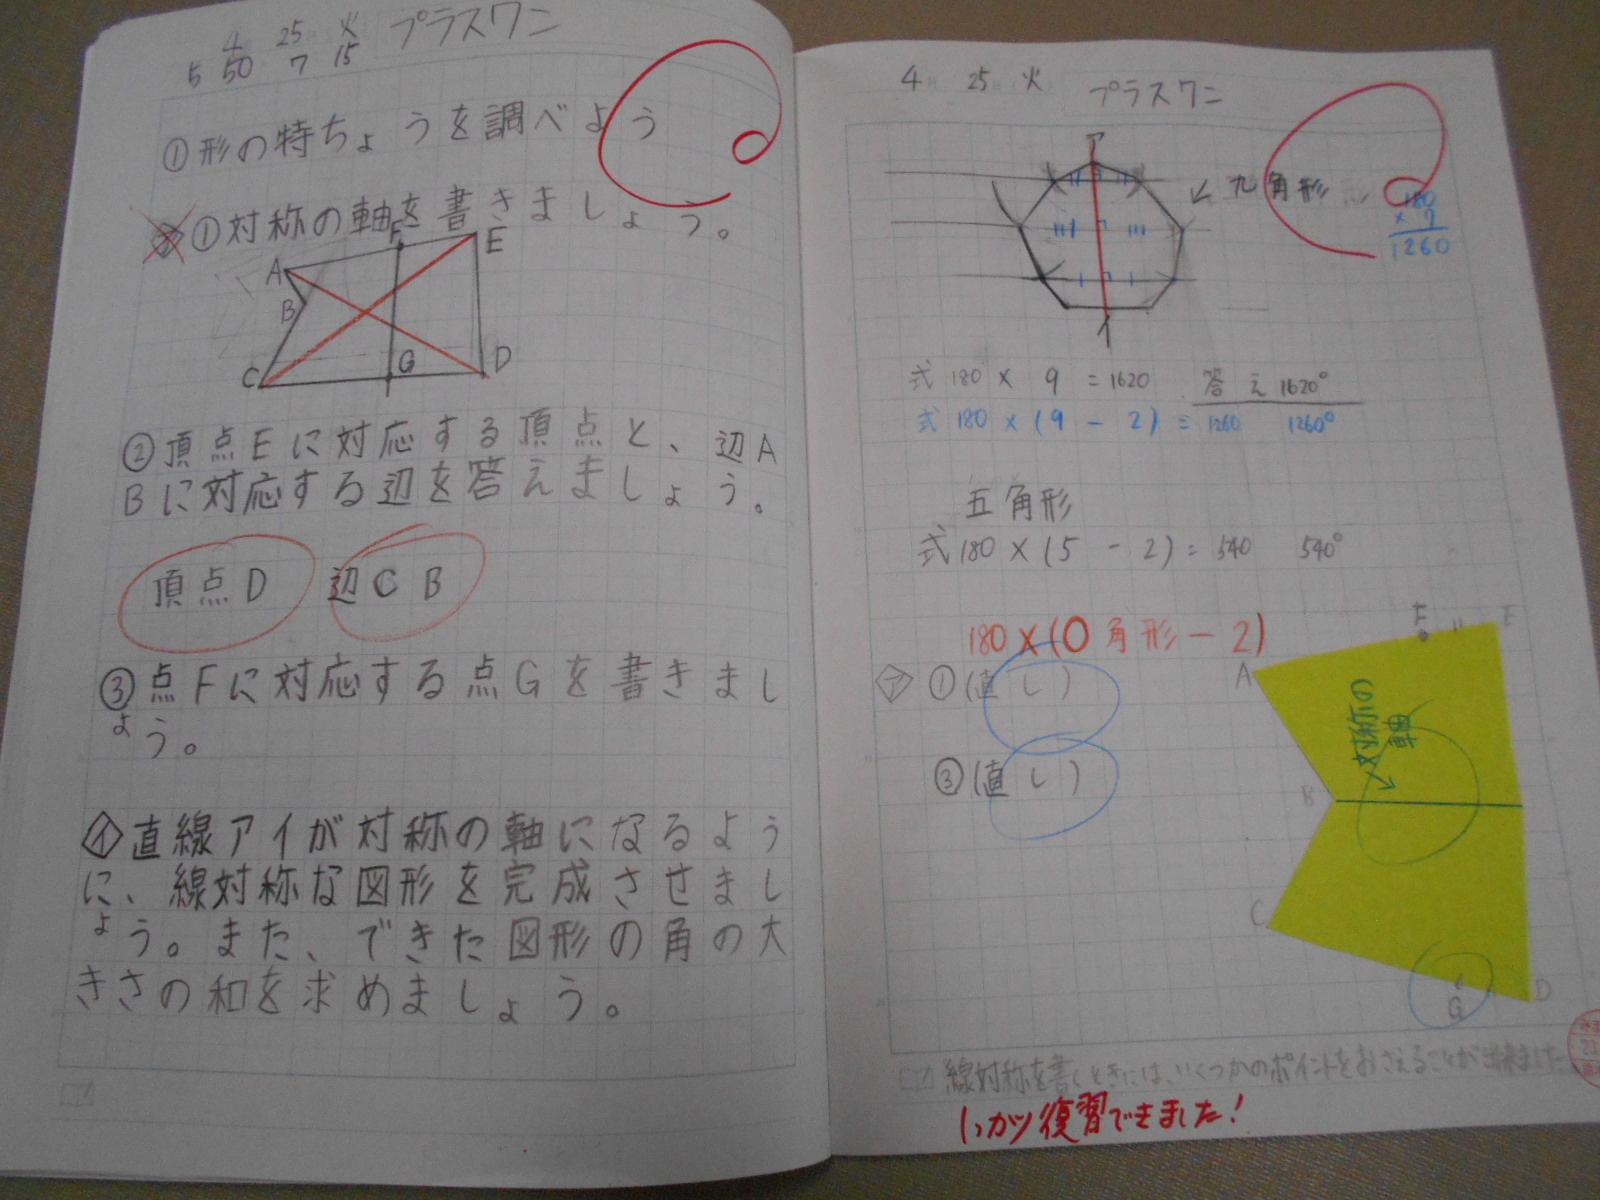 4 25 火 プラスワン
5 50 7 15
①形の特ちょうを調べよう
㋐①対称の軸を書きましょう。
A F E
B
C G D
②頂点Eに対応する頂点と、辺A
Bに対応する辺を答えましょう。
頂点D 辺CB
③点Fに対応する点Gを書きまし
ょう。
イ直線アイが対称の軸になるよう
に、線対称な図形を完成させまし
ょう。また、できた図形の角の大
きさの和を求めましょう。
4 25 火 プラスワン
ア
九角形
イ
180
× 7
1260
式 180 × 9 = 1620 答え 1620°
式 180 × (9 - 2) = 1260 1260°
五角形
式 180 × (5 - 2) = 540 540°
180 × (0角形 - 2)
ア ①(直し)
③(直し)
F E
A
対称の
軸
B
C
G D
線対称を書くときには、いくつかのポイントをおさえることが出来ました
しっかり復習できました!